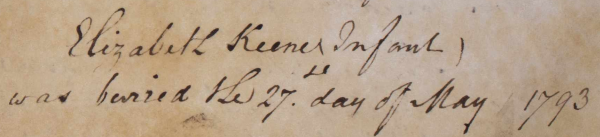 Elizabeth Keene (Infant)
was buried the 27.th day of May 1793